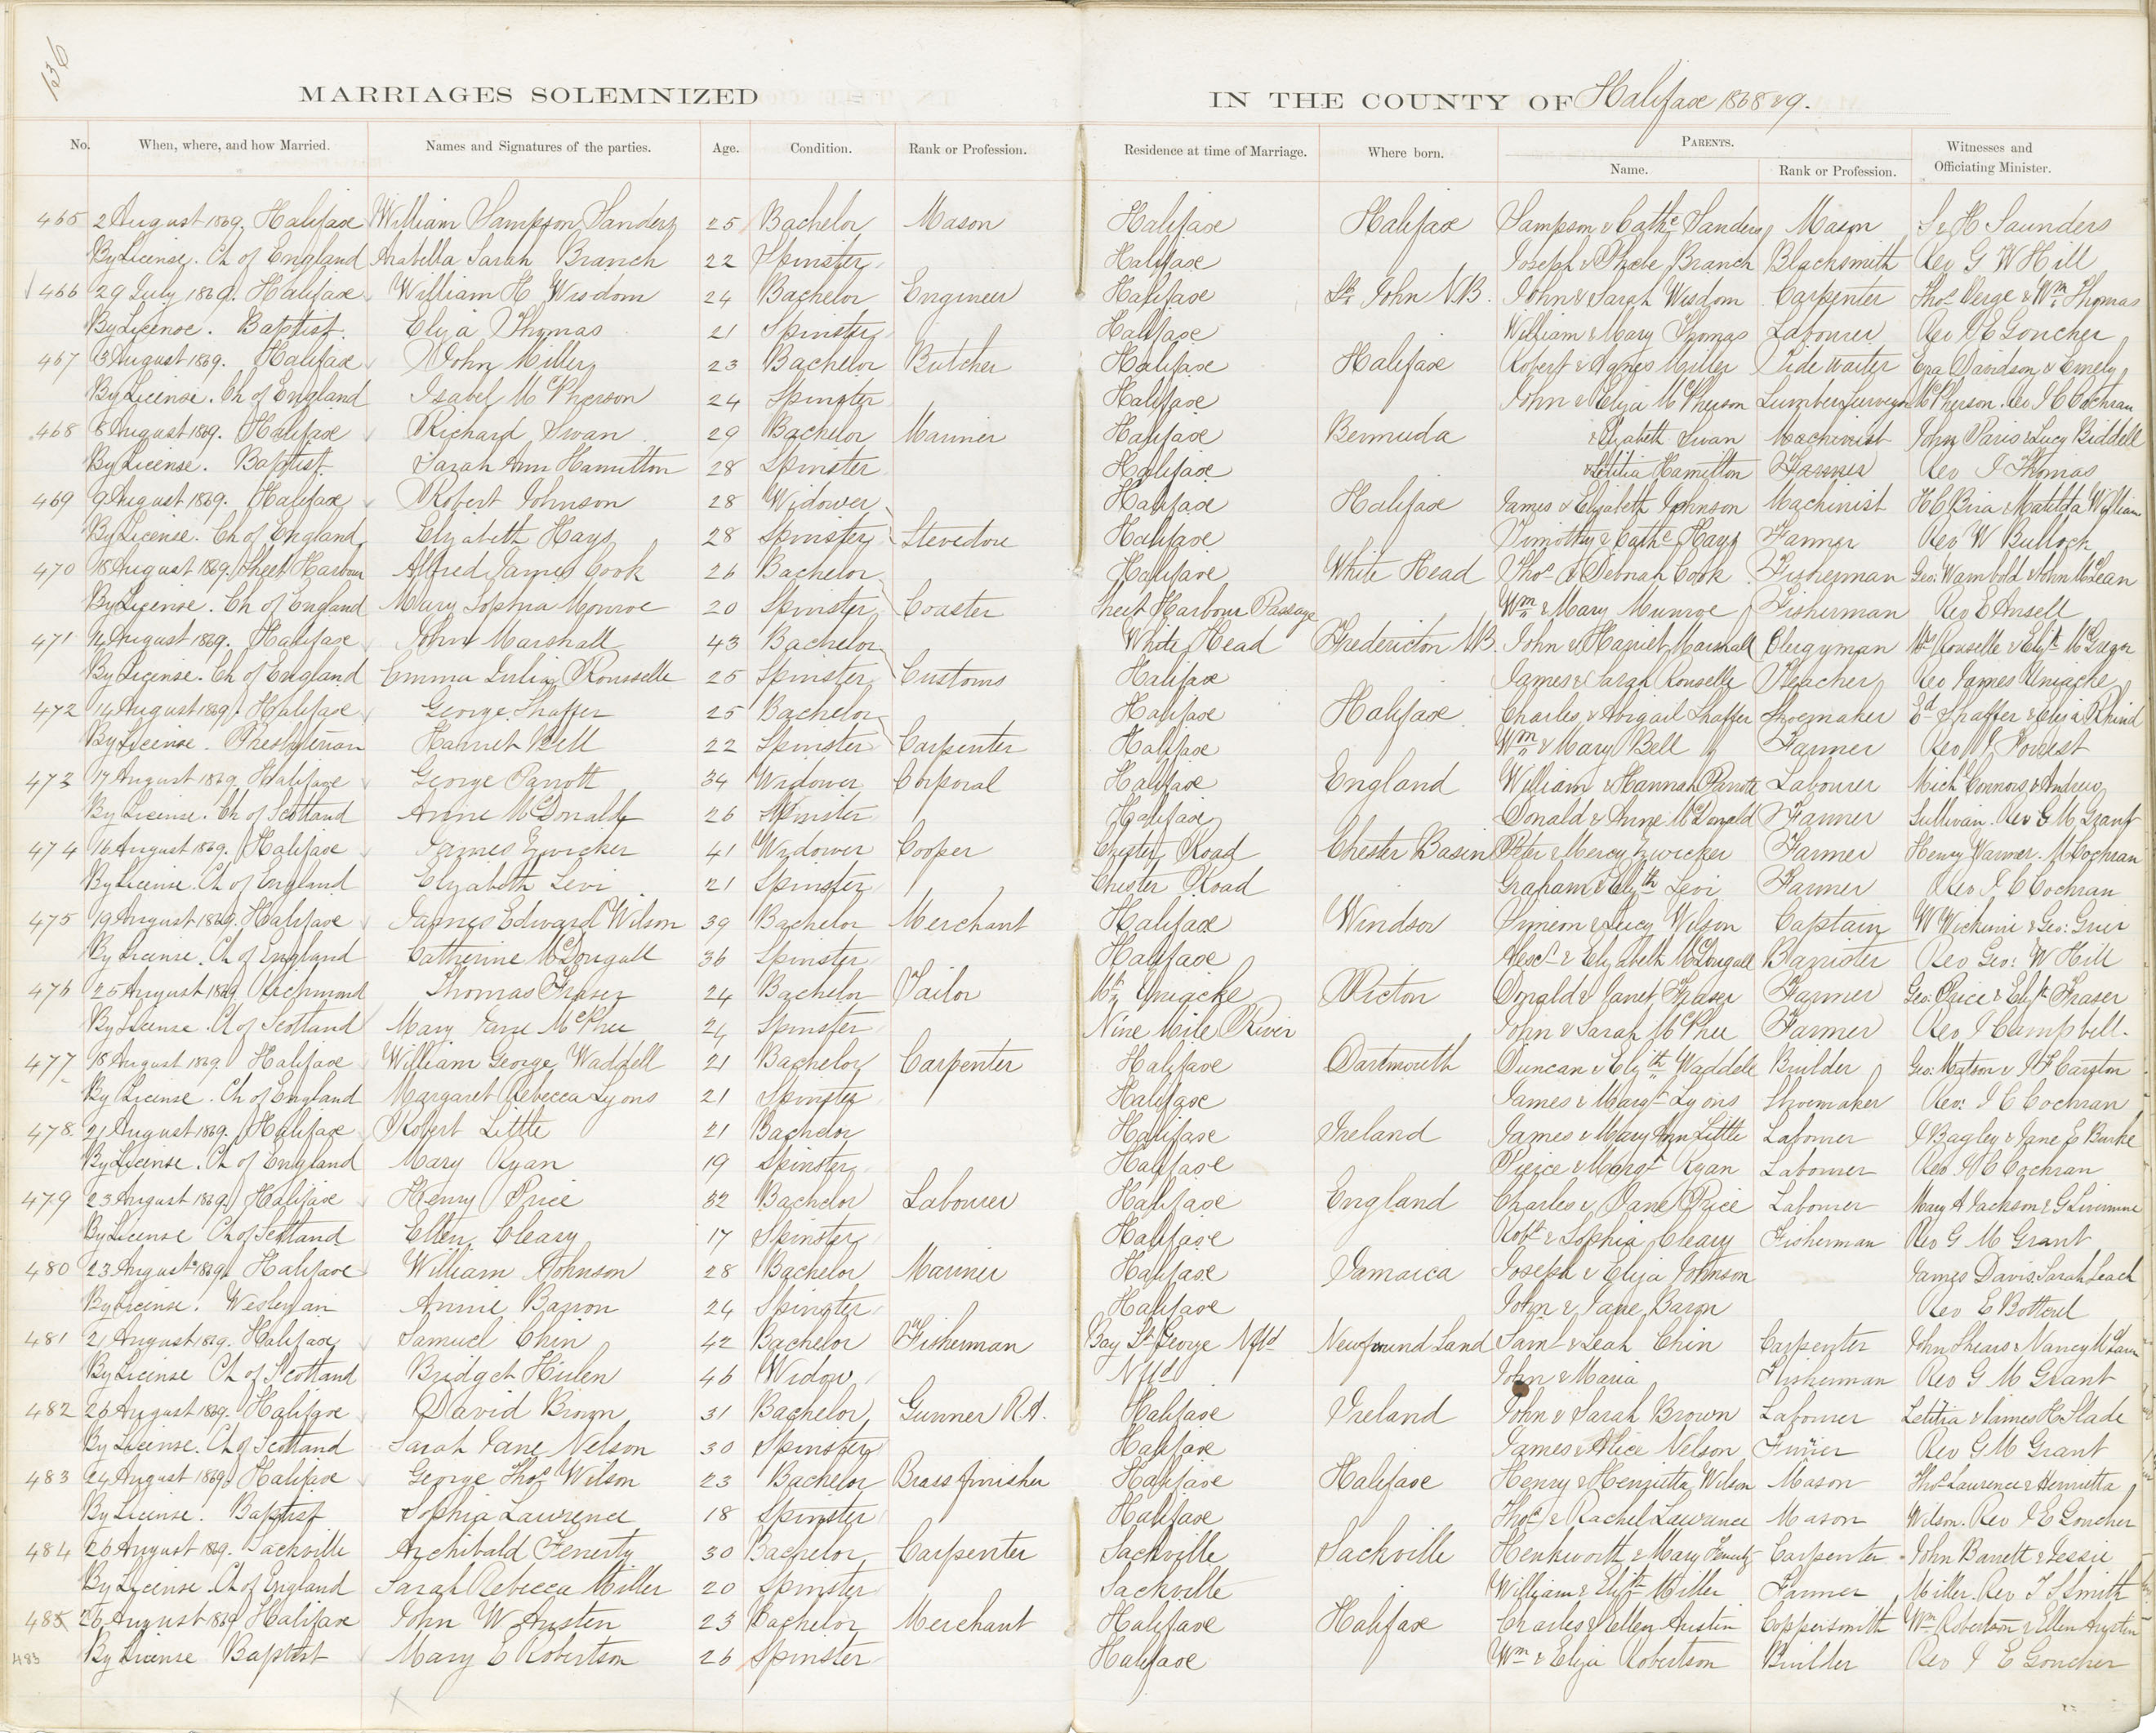 136
MARRIAGES SOLEMNIZED IN THE COUNTY OF Halifax 1868 & 9.
No. When, where, and how Married. Names and Signatures of the parties. Age. Condition. Rank or Profession. Residence at time of Marriage. Where born. PARENTS. Witnesses and
Name. Rank or Profession. Officiating Minister.
465 2 August 1869. Halifax William Sampson Sanders 25 Bachelor Mason Halifax Halifax Sampson & Cathe Sanders Mason S & H Saunders
By License. Ch of England Arabella Sarah Branch 22 Spinster Halifax Joseph & Phebe Branch Blacksmith Rev G W Hill
466 29 July 1869. Halifax William H Wisdom 24 Bachelor Engineer Halifax St John N.B. John & Sarah Wisdom Carpenter Thos & Wm Thomas
By License. Baptist. Eliza Thomas 21 Spinster Halifax William & Mary Thomas Labourer Rev J E Goucher
467 3 August 1869. Halifax John Miller 23 Bachelor Butcher Halifax Halifax Robert & Agnes Miller Tide waiter Davidson & Emely
By License. Ch of England Isabel McPherson 24 Spinster Halifax John & Eliza McPherson Lumber Surveyor McPherson. Rev J C Cochran
468 8 August 1869. Halifax Richard Swan 29 Bachelor Mariner Halifax Bermuda & Elizabeth Swan Machinist John Paris & Lucy Biddell
By License. Baptist. Sarah Ann Hamilton 28 Spinster Halifax & Letitia Hamilton Farmer Rev J Thomas
469 9 August 1869. Halifax Robert Johnson 28 Widower Halifax Halifax James & Elizabeth Johnson Machinist H C & Matilda William
By License. Ch of England Elizabeth Hays 28 Spinster Stevedore Halifax Timothy & Cathe Hays Farmer Rev W Bullock
470 18 August 1869. Sheet Harbour Alfred James Cook 26 Bachelor Halifax White Head Thos & Deborah Cook Fisherman Geo: Wambold & John McLean
By License. Ch of England Mary Sophia Monroe 20 Spinster Coaster Sheet Harbour Passage Wm & Mary Munroe Fisherman Rev E Ansell
471 14 August 1869. Halifax John Marshall 43 Bachelor White Head Fredericton N.B. John & Harriet Marshall Clergyman Rouselle & Elizt McGregor
By License. Ch of England Emma Julia Rousselle 25 Spinster Customs Halifax James & Sarah Rouselle Teacher Rev James Uniacke
472 14 August 1869. Halifax George Shaffer 25 Bachelor Halifax Halifax Charles & Abigail Shaffer Shoemaker Ed Shaffer & Eliza Rhind
By License. Presbyterian Harriet Bell 22 Spinster Carpenter Halifax Wm & Mary Bell Farmer Rev Forrest
473 17 August 1869. Halifax George Parrott 34 Widower Corporal Halifax England William & Hannah Parrott Labourer Michl Connors & Andrew
By License. Ch of Scotland Anne McDonald 26 Spinster Halifax Donald & Anne McDonald Farmer Sullivan. Rev G M Grant
474 16 August 1869. Halifax James Zwicker 41 Widower Cooper Chester Road Chester Basin Peter & Mercy Zwicker Farmer Henry Warner. M Cochran
By License. Ch of England Elizabeth Levi 21 Spinster Chester Road Graham & Elizth Levi Farmer Rev J C Cochran
475 19 August 1869. Halifax James Edward Wilson 39 Bachelor Merchant Halifax Windsor Simeon & Lucy Wilson Captain W & Geo: Grier
By License. Ch of England Catherine McDougall 36 Spinster Halifax Alexr & Elizabeth McDougall Barrister Rev Geo: W Hill
476 25 August 1869 Richmond Thomas Fraser 24 Bachelor Tailor Mt Uniacke Picton Donald & Janet Fraser Farmer Geo: Price & Elizt Fraser
By License. Ch of Scotland Mary Jane McPhee 24 Spinster Nine Mile River John & Sarah McPhee Farmer Rev J Campbell.
477 18 August 1869. Halifax William George Waddell 21 Bachelor Carpenter Halifax Dartmouth Duncan & Elizth Waddell Builder Geo: Matson &
By License. Ch of England Margaret Rebecca Lyons 21 Spinster Halifax James & Margt Lyons Shoemaker Rev: J C Cochran
478. 21 August 1869. Halifax Robert Little 21 Bachelor Halifax Ireland James & Mary Ann Little Labourer J Bagley & Jane E Burke
By License. Ch of England Mary Ryan 19 Spinster Halifax Pierce & Margt Ryan Labourer Rev J C Cochran
479 23 August 1869. Halifax Henry Price 32 Bachelor Labourer Halifax England Charles & Jane Price Labourer Mary A Jackson & G
By License Ch of Scotland Ellen Cleary 17 Spinster Halifax Robt & Sophia Cleary Fisherman Rev G M Grant
480 23 August 1869. Halifax William Johnson 28 Bachelor Mariner Halifax Jamaica Joseph & Eliza Johnson James Davis. Sarah Leach
By License. Wesleyan Annie Barron 24 Spinster Halifax John & Jane Baron Rev E Botterel
481 21 August 1869. Halifax Samuel Chin 42 Bachelor Fisherman Bay St George Nfld Newfound Land Saml & Leah Chin Carpenter John Shears & Nancy
By License Ch of Scotland Bridget Hulen 46 Widow Nfld John & Maria Fisherman Rev G M Grant
482 26 August 1869. Halifax David Brown 31 Bachelor Gunner R.A. Halifax Ireland John & Sarah Brown Labourer Letitia & James H Slade
By License. Ch of Scotland Sarah Jane Nelson 30 Spinster Halifax James & Alice Nelson Rev G M Grant
483 24 August 1869. Halifax George Thos Wilson 23 Bachelor Brass finisher Halifax Halifax Henry & Henrietta Wilson Mason Thos Laurence & Henrietta
By License. Baptist Sophia Lawrence 18 Spinster Halifax Thos & Rachel Lawrence Mason Wilson. Rev J E Goucher
484 26 August 1869. Sackville Archibald Fenerty 30 Bachelor Carpenter Sackville Sackville & Mary Fenerty Carpenter John Barrett & Jessie
By License. Ch of England Sarah Rebecca Miller 20 Spinster Sackville William & Elizt Miller Farmer Miller. Rev T S Smith
485 26 August 1869 Halifax John W Austen 23 Bachelor Merchant Halifax Halifax Charles & Ellen Austin Coppersmith Wm Robertson & Ellen Austin
483 By License Baptist Mary E Robertson 26 Spinster Halifax Wm & Eliza Robertson Builder Rev J E Goucher
X